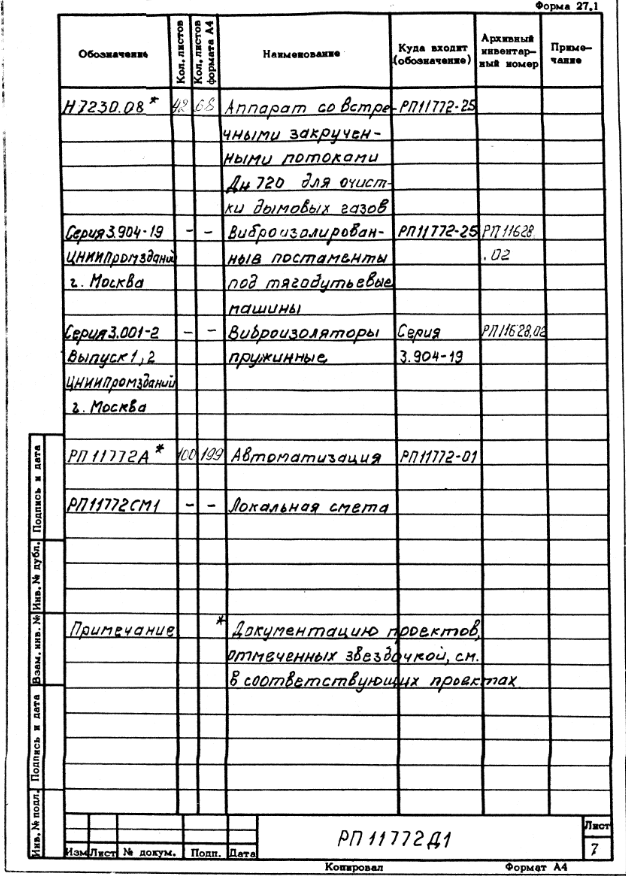 Форма 27.1
Обозначение | Кол. листов | Кол. листов формата А4 | Наименование | Куда входит (обозначение) | Архивный инвентарный номер | Примечание
Н7230.08* | 42 | 68 | Аппарат со встре- | РП11772-25
чными закручен-
ными потоками
Дн 720 для очист-
ки дымовых газов
Серия 3.904-19 | - | - | Виброизолирован- | РП11772-25 | РП11628
ЦНИИПромзданий | ные постаменты | .02
г. Москва | под тягодутьевые
машины
Серия 3.001-2 | - | - | Виброизоляторы | Серия | РП11628.02
Выпуск 1, 2 | пружинные | 3.904-19
ЦНИИПромзданий
г. Москва
РП 11772А* | 100 | 199 | Автоматизация | РП11772-01
РП11772СМ1 | - | - | Локальная смета
Примечание * Документацию проектов,
отмеченных звездочкой, см.
в соответствующих проектах
Инв. № подл. | Подпись и дата | Взам. инв. № | Инв. № дубл. | Подпись и дата
РП 11772Д1
Лист
7
Изм | Лист | № докум. | Подп. | Дата
Копировал Формат А4